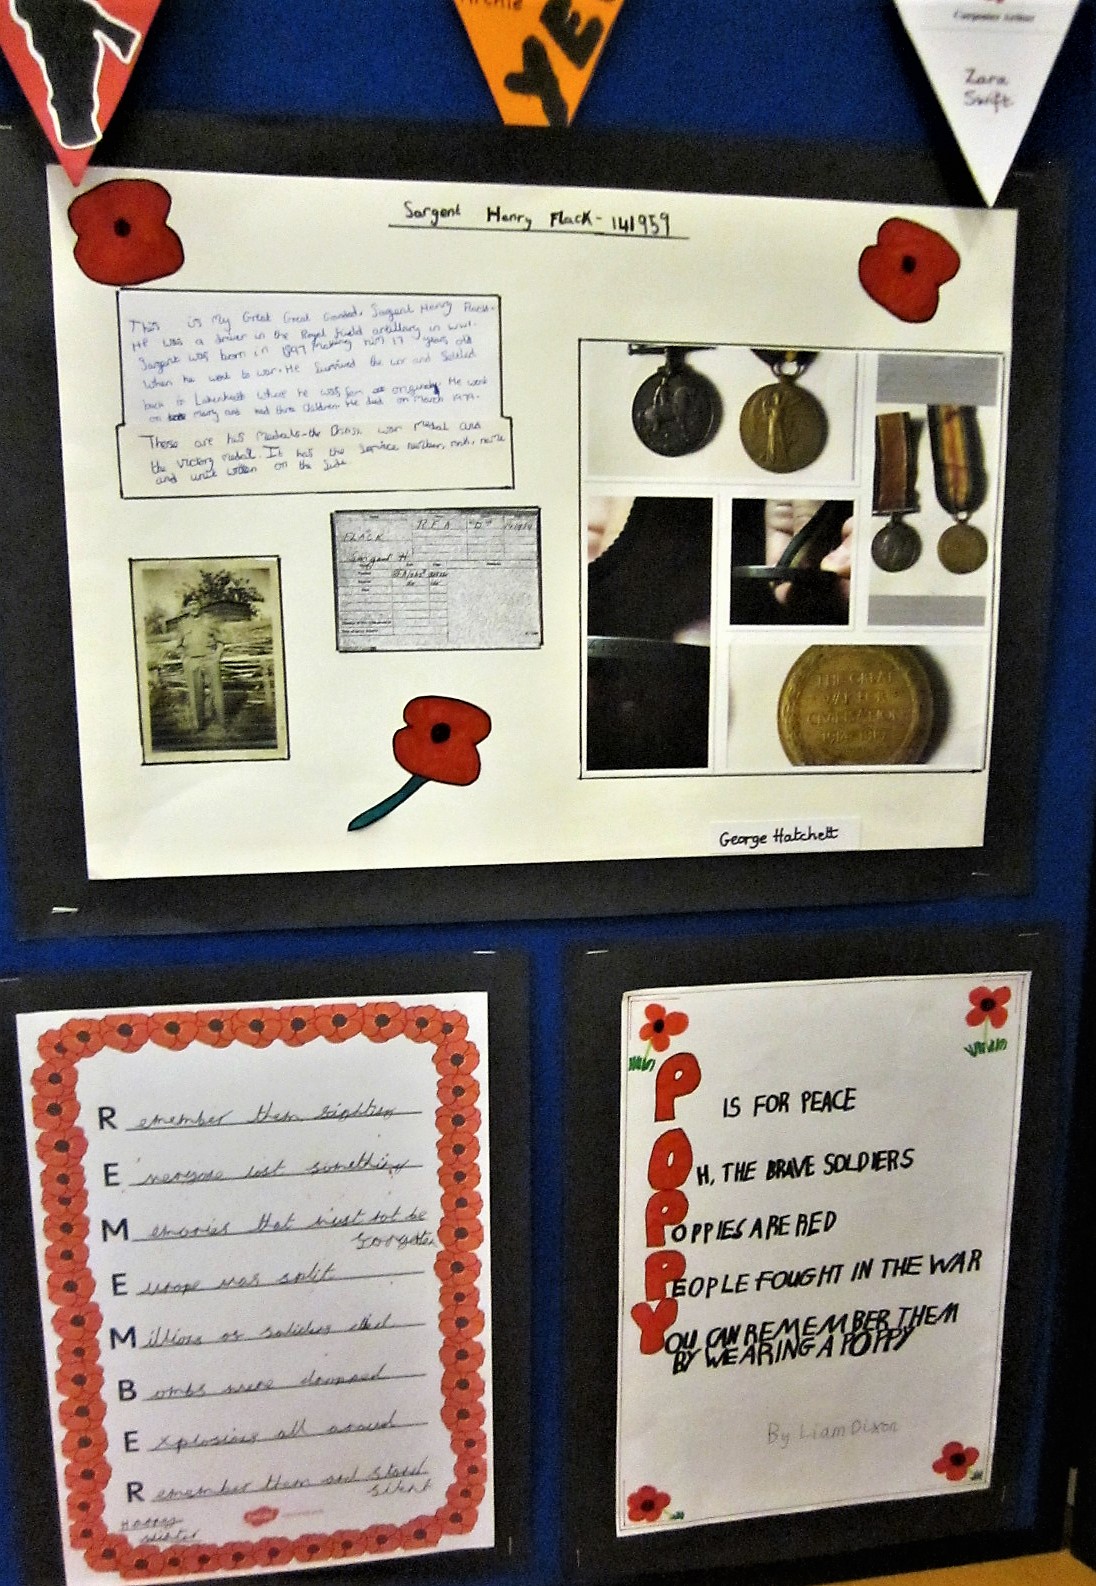 Archie
YE
Carpenter Artizer
Zara
Swift
Sargent Henry Flack - 141959
This is my Great Great Grandad, Sargent Henry Flack.
He was a driver in the Royal field artillary in ww1.
Sargent was born in 1897 making him 17 years old
when he went to war. He survived the war and settled
back in Lakenheath where he was from originally. He went
on to marry and had three children. He died on March 1979.
These are his medals-the British war medal and
the victory medal. It has the service number, rank, name
and unit written on the side
R.F.A
FLACK
Sargent H
THE GREAT
WAR FOR
CIVILISATION
1914-1919
George Hatchett
Remember them fighting
Everyone lost something
Memories that must not be
forgotten
Europe was split
Millions of soldiers died
Bombs were dropped
Explosions all around
Remember them and stand
silent
P IS FOR PEACE
OH, THE BRAVE SOLDIERS
POPPIES ARE RED
PEOPLE FOUGHT IN THE WAR
YOU CAN REMEMBER THEM
BY WEARING A POPPY
By Liam Dixon